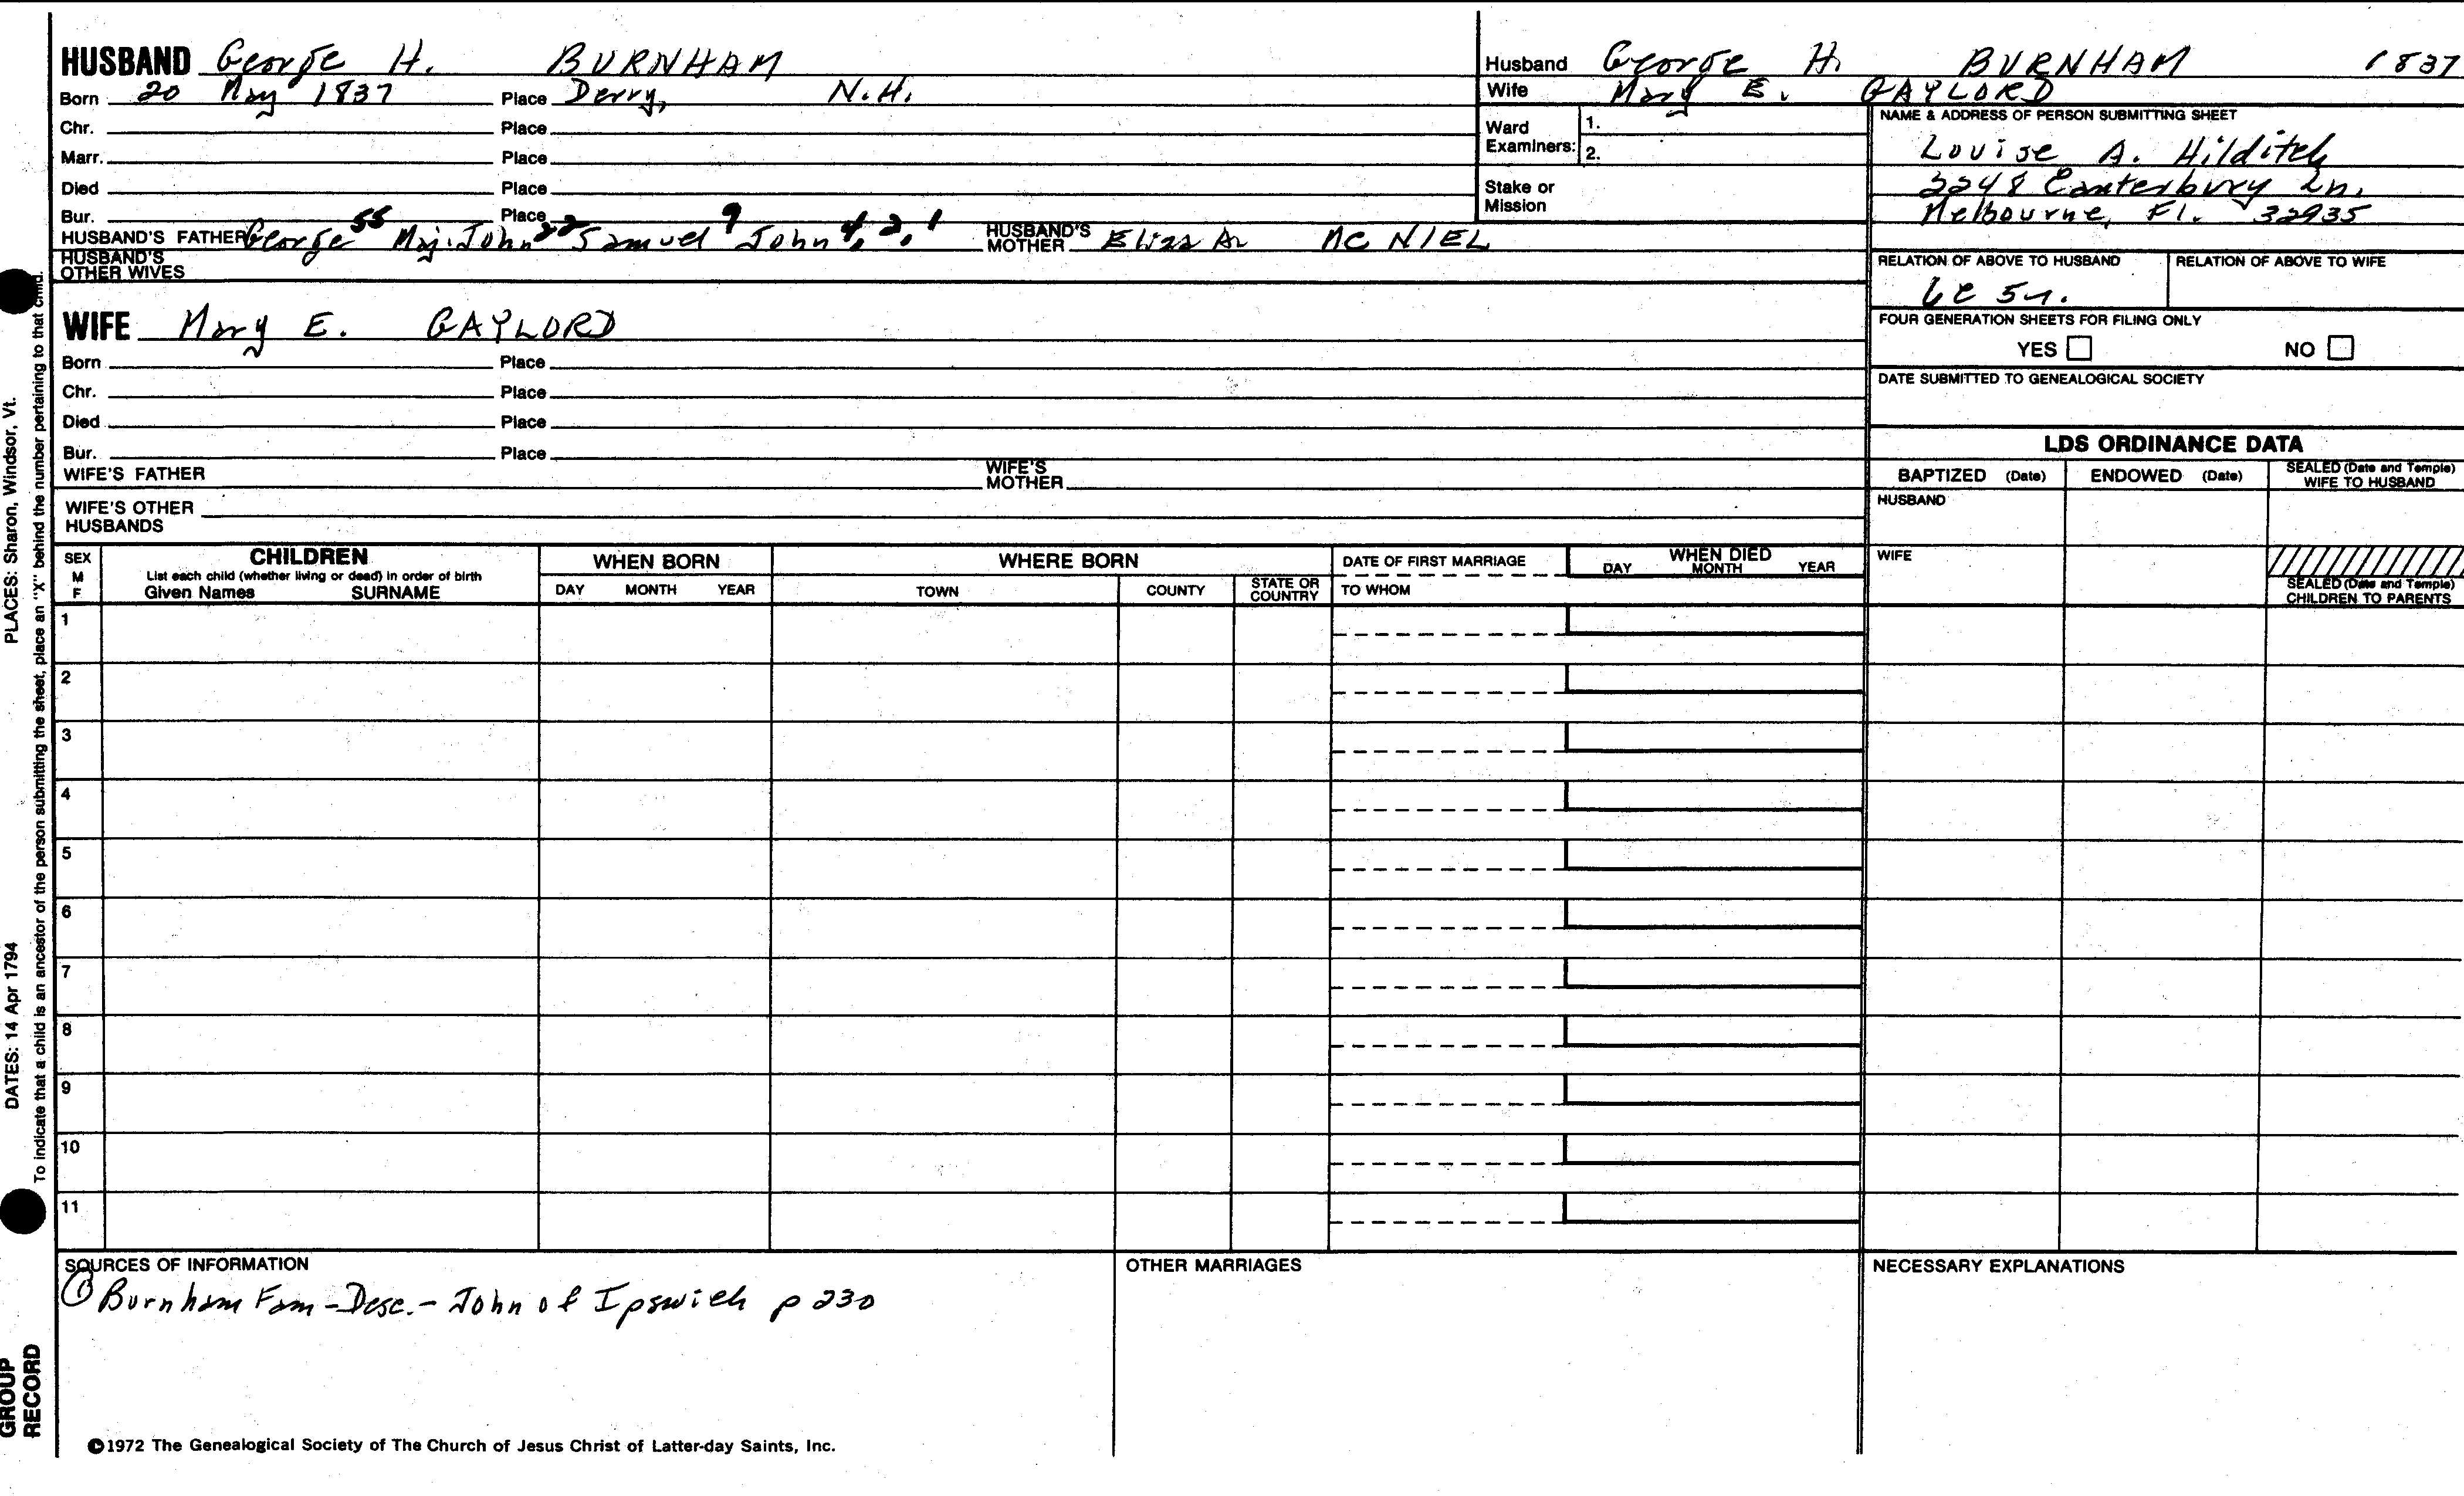 HUSBAND George H. BURNHAM
Born 20 May 1837 Place Derry, N.H.
Chr. Place
Marr. Place
Died Place
Bur. Place
HUSBAND'S FATHER George 55 Maj. John 22 Samuel 9 John 4, 2, 1 HUSBAND'S MOTHER Eliza A. MC NIEL
HUSBAND'S OTHER WIVES
WIFE Mary E. GAYLORD
Born Place
Chr. Place
Died Place
Bur. Place
WIFE'S FATHER WIFE'S MOTHER
WIFE'S OTHER HUSBANDS
Husband George H. BURNHAM 1837
Wife Mary E. GAYLORD
Ward Examiners: 1.
2.
Stake or Mission
NAME & ADDRESS OF PERSON SUBMITTING SHEET
Louise A. Hilditch
2248 Canterbury Ln.
Melbourne, Fl. 32935
RELATION OF ABOVE TO HUSBAND RELATION OF ABOVE TO WIFE
FOUR GENERATION SHEETS FOR FILING ONLY
YES NO
DATE SUBMITTED TO GENEALOGICAL SOCIETY
LDS ORDINANCE DATA
BAPTIZED (Date) ENDOWED (Date) SEALED (Date and Temple) WIFE TO HUSBAND
HUSBAND
WIFE
SEALED (Date and Temple) CHILDREN TO PARENTS
SEX M F
CHILDREN
List each child (whether living or dead) in order of birth
Given Names SURNAME
WHEN BORN
DAY MONTH YEAR
WHERE BORN
TOWN COUNTY STATE OR COUNTRY
DATE OF FIRST MARRIAGE
TO WHOM
WHEN DIED
DAY MONTH YEAR
1
2
3
4
5
6
7
8
9
10
11
SOURCES OF INFORMATION
① Burnham Fam - Desc. - John of Ipswich p 230
OTHER MARRIAGES
NECESSARY EXPLANATIONS
©1972 The Genealogical Society of The Church of Jesus Christ of Latter-day Saints, Inc.
PLACES: Sharon, Windsor, Vt.
DATES: 14 Apr 1794
To indicate that a child is an ancestor of the person submitting the sheet, place an "X" behind the number pertaining to that child.
GROUP
RECORD